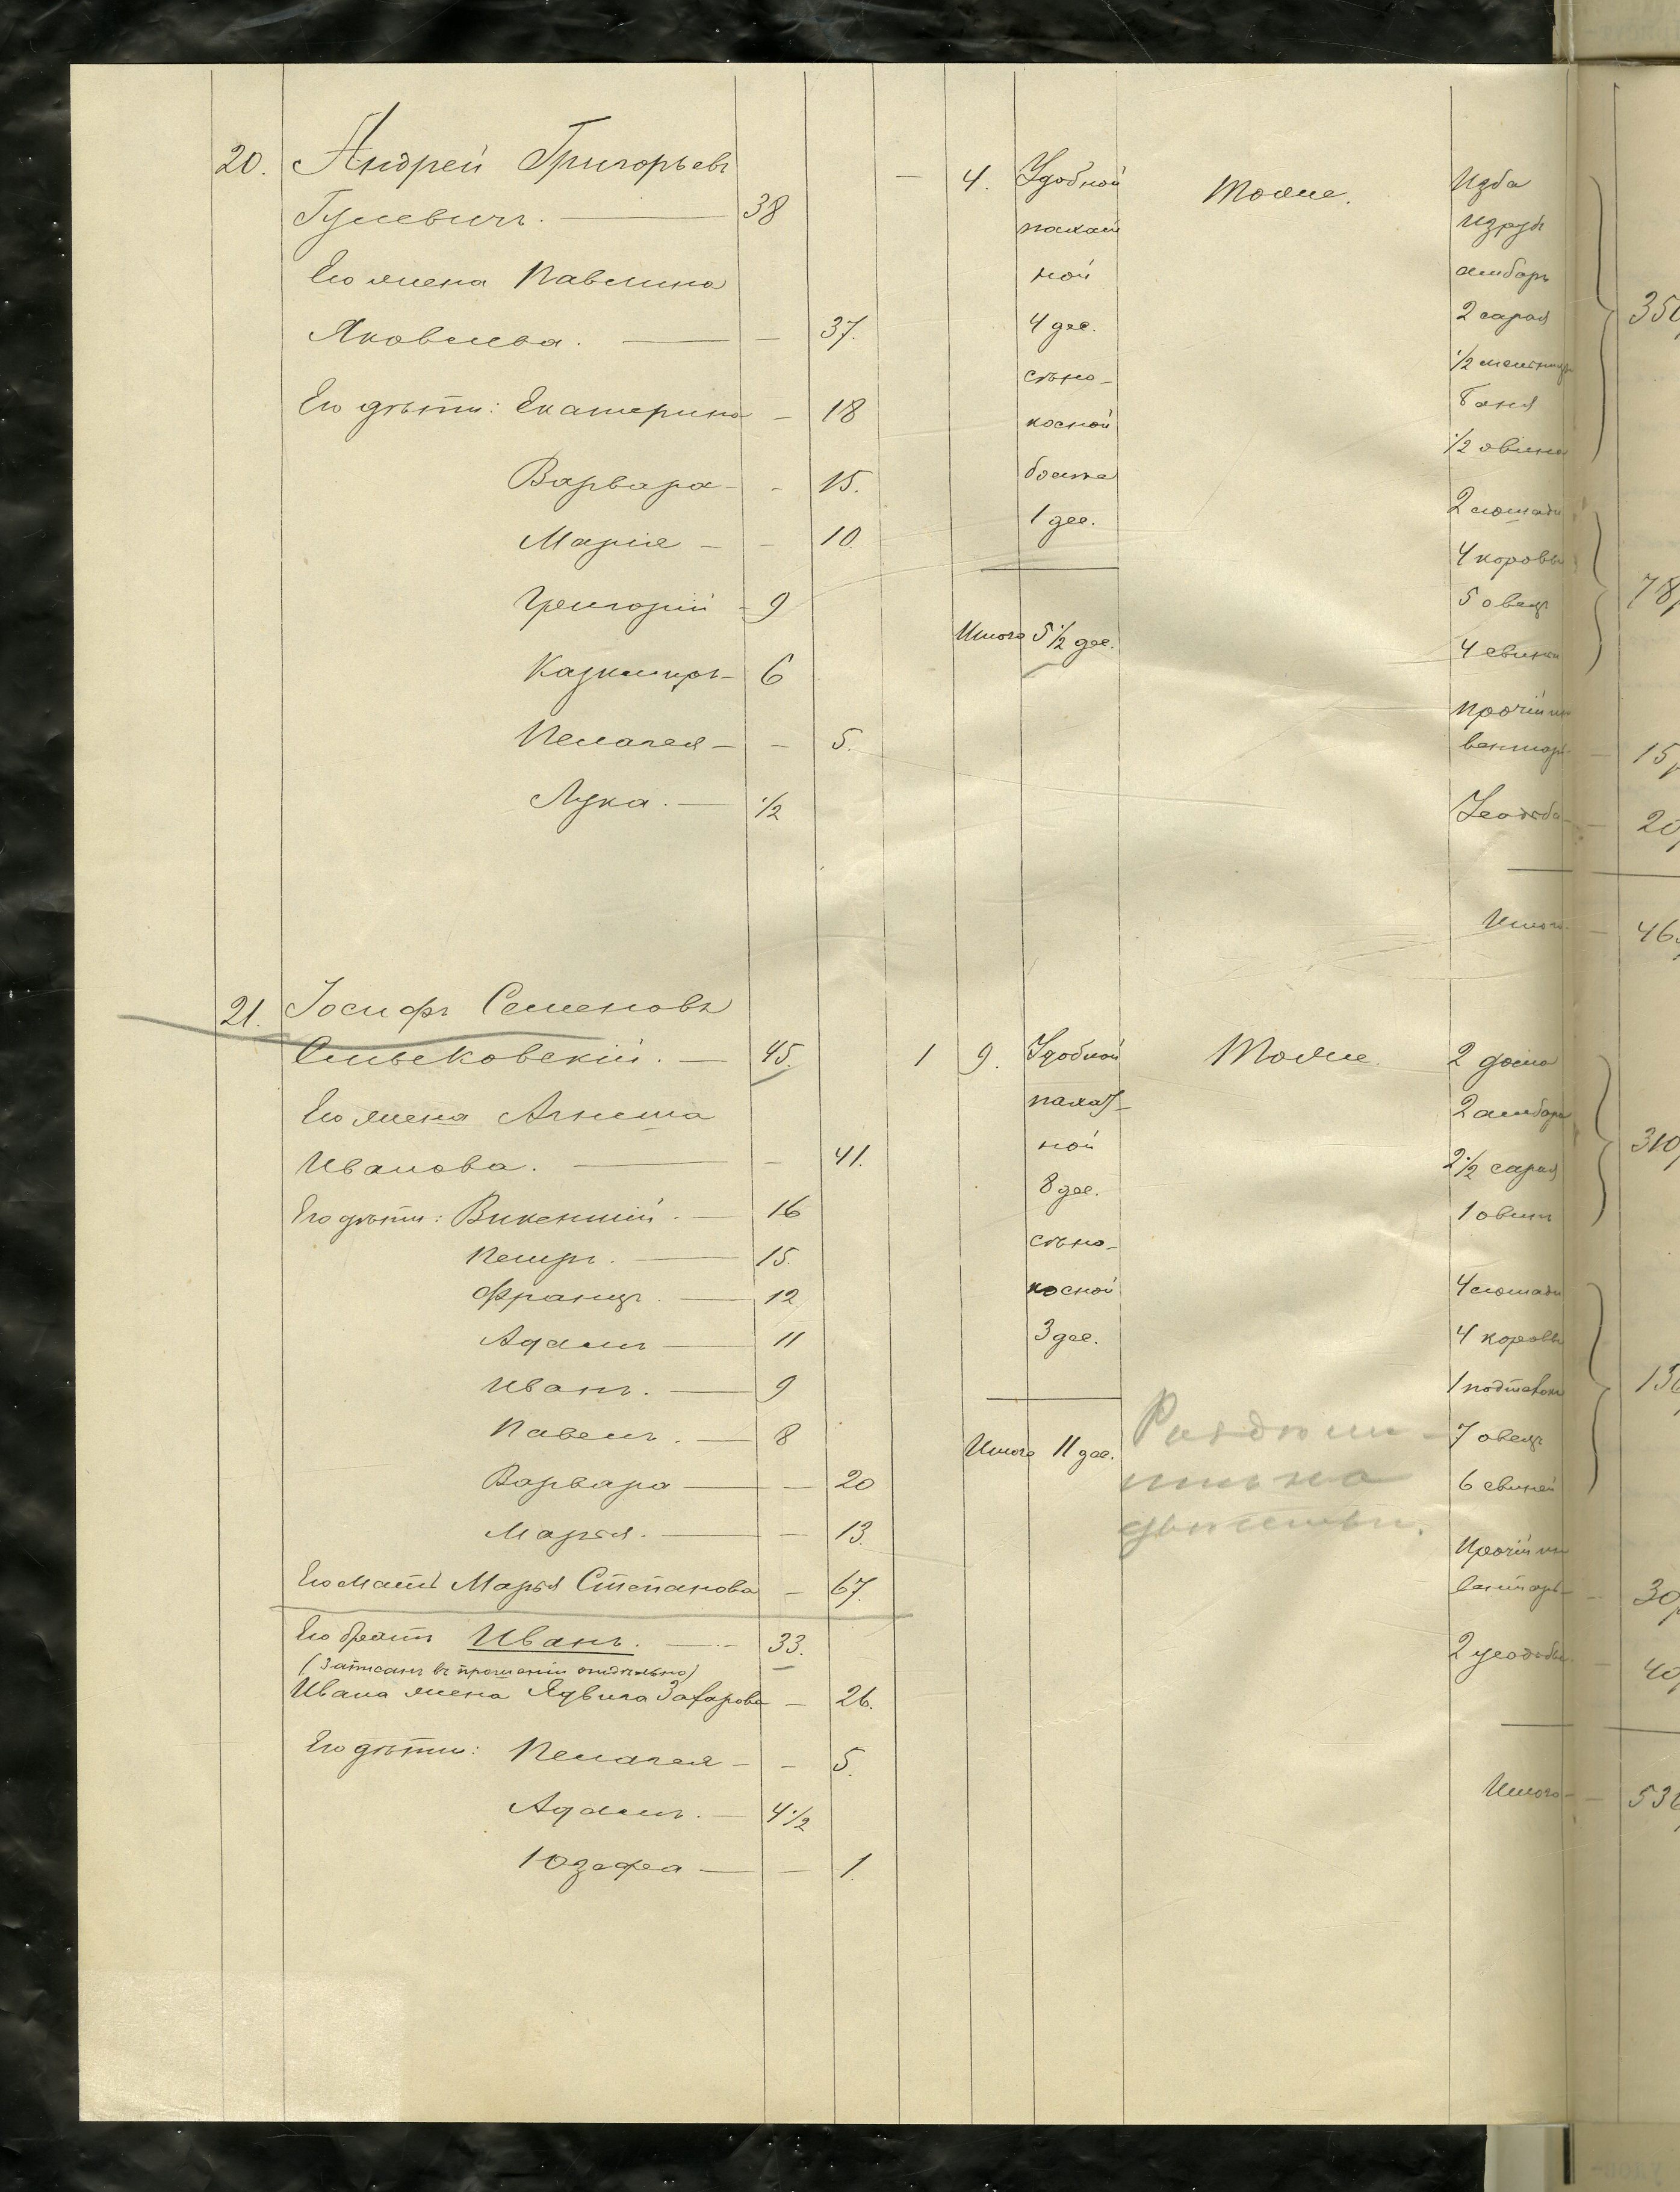 20. Андрей Григорьевъ
Гулевичъ. — 38
— 4. Удобной
пахат
ной
4 дес.
сѣно-
косной
болѣе
1 дес.
Итого 5 1/2 дес.
Тоже.
Изба
амбаръ
2 сарая
1/2 мельницы
Баня
1/2 овина
2 лошади
4 коровы
5 овец
4 свиньи
прочій ин
вентарь — 15
Усадьба — 20
Итого — 46
Его жена Павлина
Яковлева. — — 37.
Его дѣти: Екатерина — 18
Варвара — — 15.
Марія — — 10
Григорий — 9
Казимиръ — 6
Пелагея — — 5.
Лука. — 1/2
21. Іосифъ Семеновъ
45.
1 9. Удобной
пахат-
ной
8 дес.
сѣно-
косной
3 дес.
Итого 11 дес.
Тоже.
2 дома
2 амбара
2 1/2 сарая
1 овинъ
310
4 лошади
4 коровы
1 подтелокъ
7 овецъ
6 свиней
Прочій ин
вентарь — 30
2 усадьбы — 40
Итого — 53
Его жена Агнеша
Иванова. — — 41.
Его дѣти: Викентий. — 16
Петръ. — 15.
Францъ. — 12
Адамъ — 11
Иванъ. — 9
Павелъ. — 8
Варвара — — 20
Марья. — — 13.
Его мать Марья Степанова — 67.
Его братъ Иванъ. — 33.
(Записанъ въ прошеніи отдѣльно)
Ивана жена Ядвига Захарова — 26.
Его дѣти: Пелагея — — 5.
Адамъ. — 4 1/2
Юзефа — — 1.